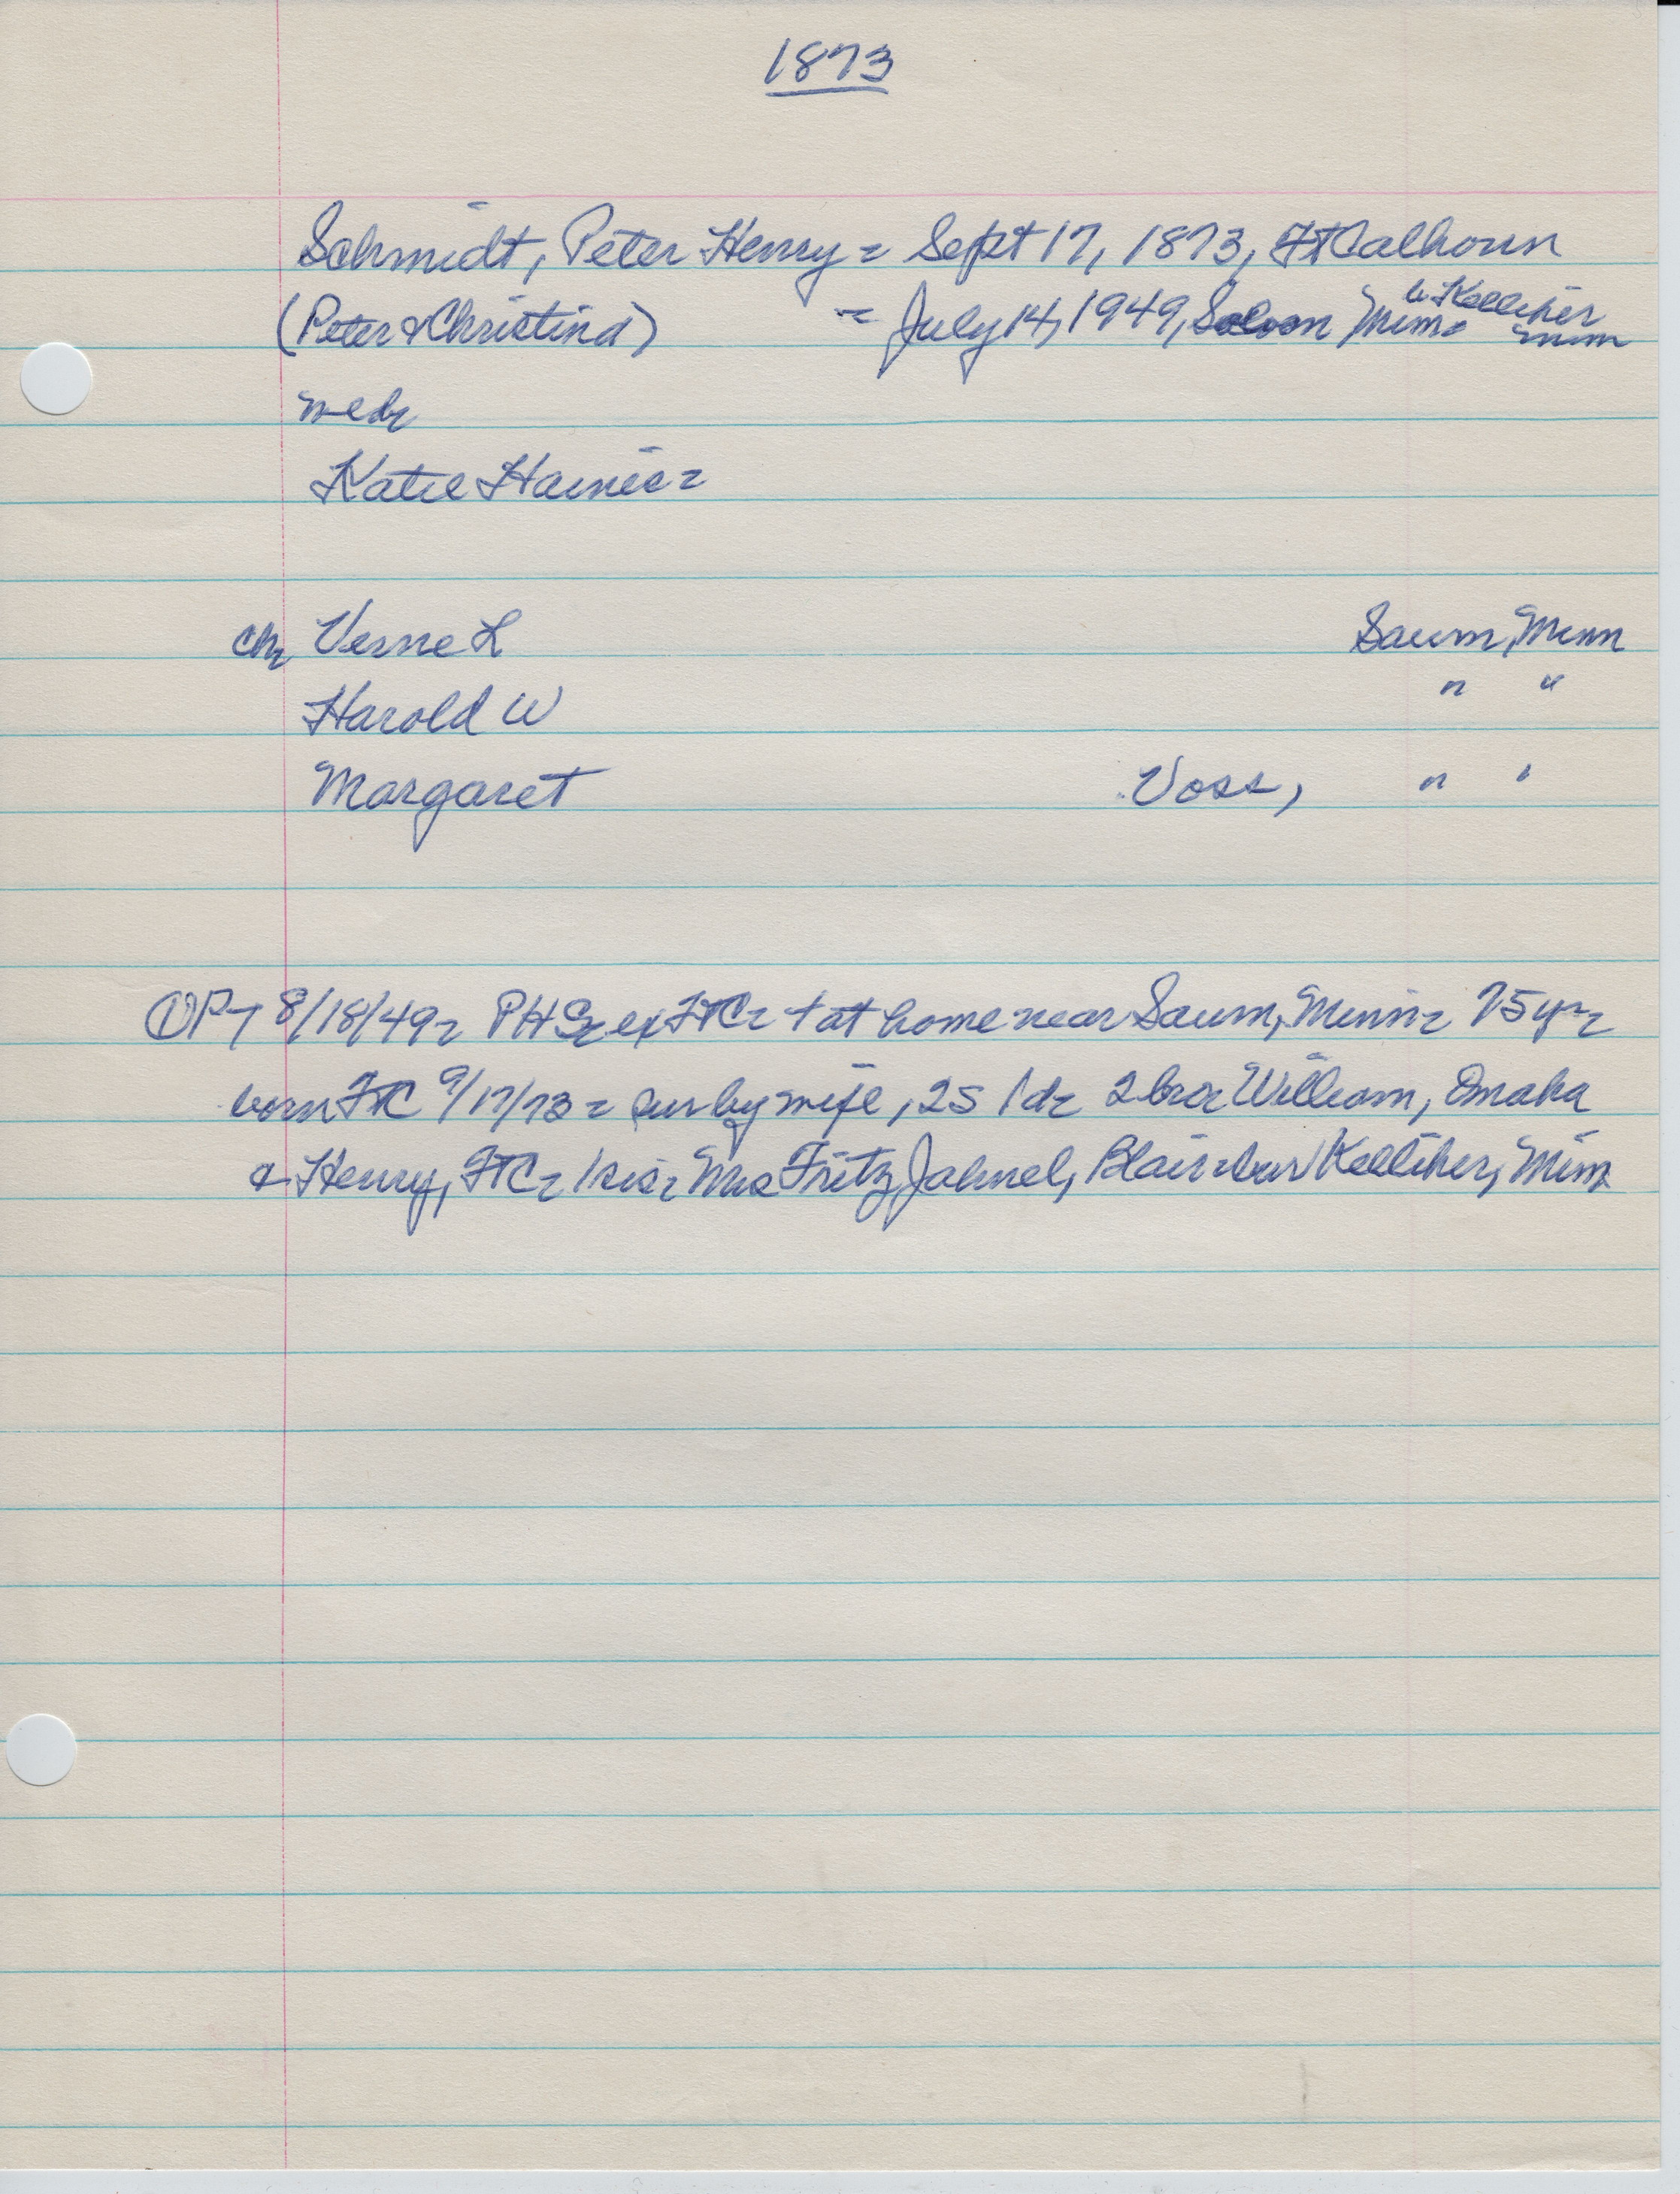 1873
Schmidt, Peter Henry - Sept 17, 1873, Ft Calhoun
(Peter & Christina) - July 14, 1949, Minn b. Kelliher Minn
wed-
Katie
ch- Verne L Saum, Minn
Harold W " "
Margaret Voss, " "
8/18/49- PHS- ex FtC- + at home near Saum, Minn- 75 yr-
born FtC 9/17/73- sur by wife, 2s 1d- 2 bro- William, Omaha
& Henry, FtC- 1 sis- Mrs Fritz Jahnel, Blair- bur Kelliher, Minn